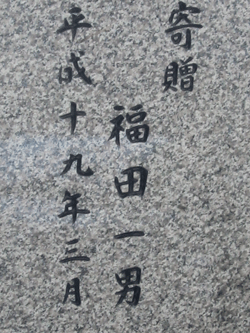 寄贈
福田一男
平成十九年三月